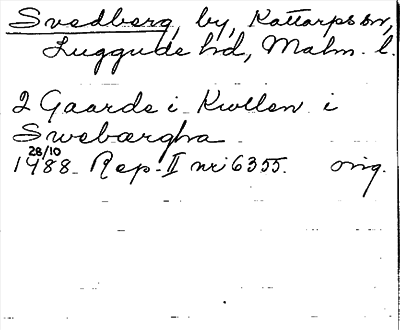 Svedberg, by, Kattarps sn,
Luggude hd, Malm. l.
2 Gaarde i Kwllen i
Swebærgha
28/10
1488. Rep. II nr 6355. orig.